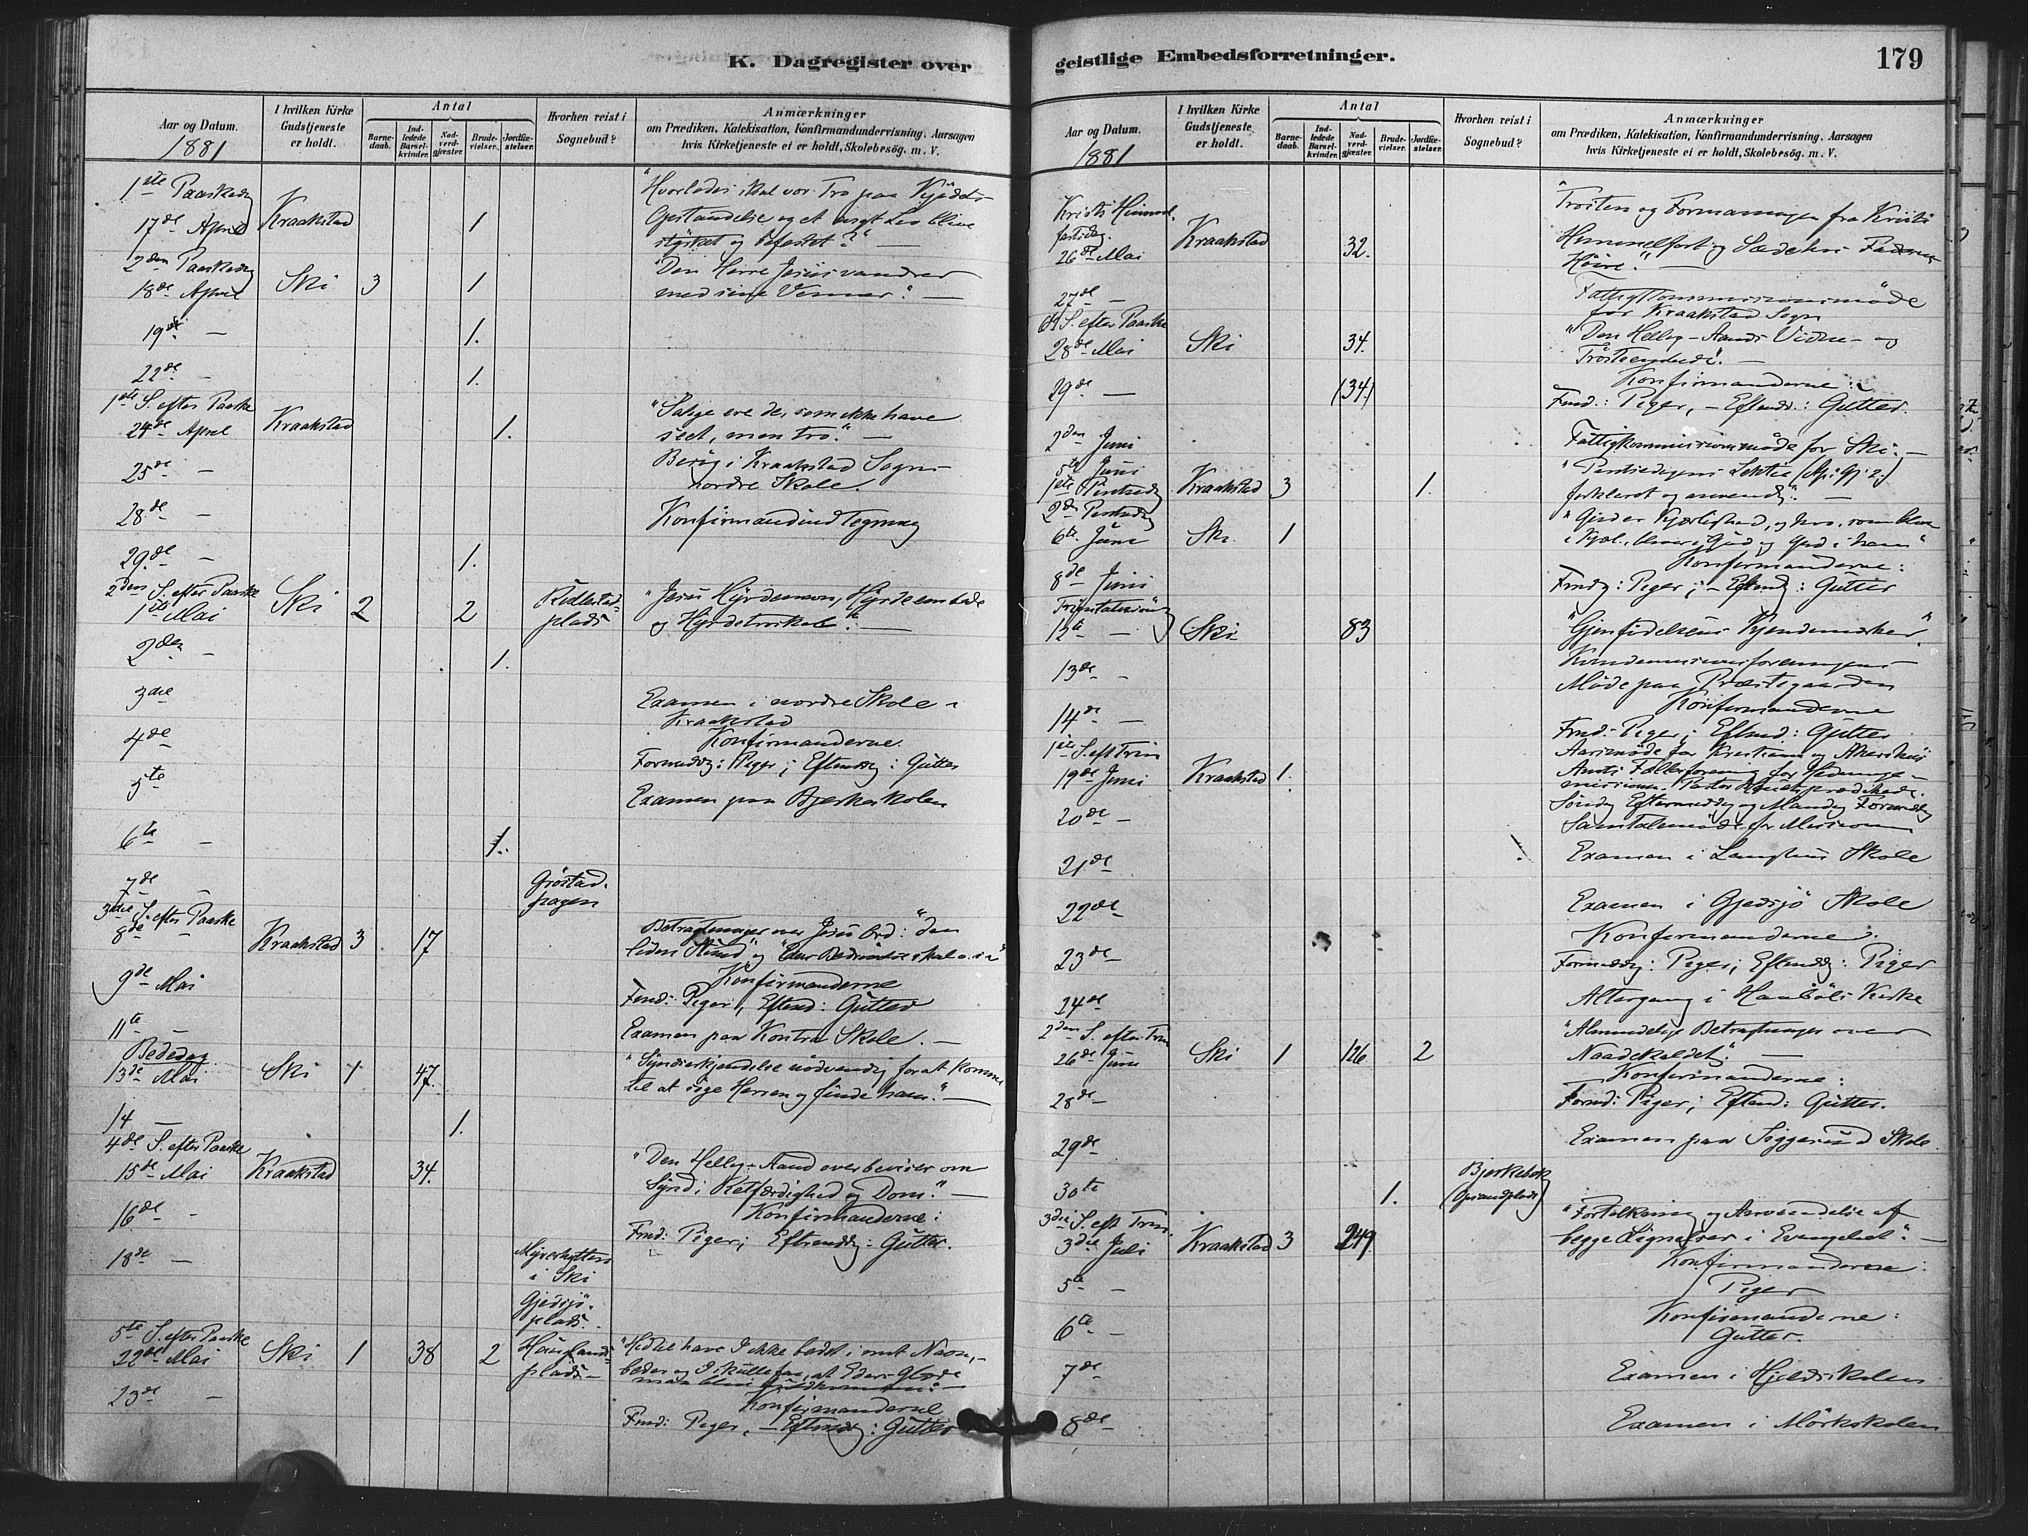 K. Dagregister over
Aar og Datum.
1881
I hvilken Kirke Gudstjeneste er holdt.
Antal
Barnedaab.
Indledede Barselkvinder.
Nadverdgjæster.
Brudevielser.
Jordfæstelser.
Hvorhen reist i Sognebud?
Anmærkninger
om Prædiken, Katekisation, Konfirmandundervisning, Aarsagen
hvis Kirketjeneste ei er holdt, Skolebesøg. m. V.
1ste Paaskedag
17de April Kraakstad 1
"Hvorledes skal vor Tro paa
Opstandelse og et Liv blive
styrket og befæstet?" —
2den Paaskedag
18de April Ski 3 1
"Den Herre Jesus vandrer
med sine Venner." —
19de — 1.
22de — 1.
1ste S. efter Paaske
24de April Kraakstad 1.
"Salige ere de, som ikke have
seet, men tro." —
25de —
Besøg i Kraakstad Sogns
nordre Skole.
28de —
Konfirmandindtegning
29de — 1.
2den S. efter Paaske
1ste Mai Ski 2 2
plads
"Jesu Hyrdenavn, Hyrdeembede
og Hyrdetroskab." —
2den — 1.
3die
Examen i nordre Skole i
Kraakstad
4de
Konfirmanderne.
Formiddg: Piger; Eftmdg: Gutter
5te
Examen paa Bjerkeskolen
6te — 1.
7de —
3die S. efter Paaske
8de — Kraakstad 3 17
Betragtninger over Jesu Ord: "den
liden Stund" og
9de Mai
Konfirmanderne
Fmd: Piger, Eftmd: Gutter
11te —
Examen paa Kontra Skole. —
Bededag
13de Mai Ski 1 47.
"Syndserkjendelse nødvendig for at komme
til at søge Herren og finde ham." —
14 — 1.
4de S. efter Paaske
15de Mai Kraakstad 34.
"Den Hellig-Aand overbeviser om
Synd, Retfærdighed og Dom." —
16de —
Konfirmanderne:
Fmd: Piger; Eftmdg: Gutter.
18de —
i Ski
Gjedsjø-
plads.
5te S. efter Paaske
22de Mai Ski 1 38 2
plads —
"Hidtil have I ikke bedet i mit Navn,
beder og I skulle faa, at Eders Glæde
maa blive fuldkommen." —
23de —
Konfirmanderne
Fmd: Piger, — Eftmdg: Gutter
geistlige Embedsforretninger.
179
Aar og Datum.
1881
I hvilken Kirke Gudstjeneste er holdt.
Antal
Barnedaab.
Indledede Barselkvinder.
Nadverdgjæster.
Brudevielser.
Jordfæstelser.
Hvorhen reist i Sognebud?
Anmærkninger
om Prædiken, Katekisation, Konfirmandundervisning, Aarsagen
hvis Kirketjeneste ei er holdt, Skolebesøg. m. V.
Kristi Himmel-
fartsdag
26de Mai Kraakstad 32.
"Trøsten og Formaningen fra Kristi
Himmelfart og Sæde hos Faderens
Høire." —
27de —
Fattigkommissionsmøde
for Kraakstad Sogn
6te S. efter Paaske
28de Mai Ski 34.
"Den Hellig-Aands Vidne- og
Trøsteembede". —
29de — (34)
Konfirmanderne:
Fmd: Piger, — Eftmd: Gutter.
2den Juni
Fattigkommissionsmøde for Ski. —
5te Juni
1ste Pintsedag Kraakstad 3 1.
"Pintsedagens Lektie (Ap: Gj: 2)
forklaret og anvendt". —
2den Pintsedag
6te Juni Ski 1
"Gud er Kjærlighed, og hvo, som bliver
i Kjæl., bliver i Gud, og Gud i ham"
8de Juni
Konfirmanderne:
Fmdg: Piger; — Eftmd: Gutter
Trinitatissøndag
12te — Ski 83
"Gjenfødelsens Kjendemærker"
13de —
Kvindemissionsforeningens
Møde paa Præstegaarden
14de —
Konfirmanderne
Fmd: Piger; Eftmd: Gutter
1ste S. eft Trin
19de Juni Kraakstad 1.
Aarsmøde for Kristiania og Akershus
Amts Fællesforening for Hedninge-
missionen.
Søndag Eftermiddag og Mandag Formiddag
Samtalemøde for Missionen
20de —
21de
Examen i Langhus Skole
22de —
Examen i Gjedsjø Skole
23de —
Konfirmanderne.
Formiddg: Piger; Eftmdg: Piger
24de —
Altergang i Kirke
2den S. efter Trin
26de Juni Ski 1 126. 2
"Almindelige Betragtninger over
Naadekaldet". —
28de —
Konfirmanderne:
Formd: Piger; Eftmd: Gutter.
29de —
Examen paa Siggerud Skole.
30te 1.
3die S. eft Trin.
3die Juli Kraakstad 3 249.
"Fortolkning og Anvendelse af
begge Lignelser i Evangeliet". —
5te —
Konfirmanderne:
Piger
6te —
Konfirmanderne:
Gutter.
7de —
Examen i Hjeldsskolen
8de —
Examen i Mørkskolen